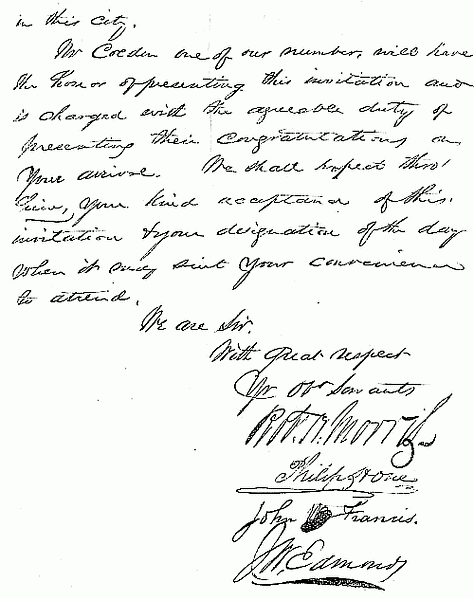 in this city.
Mr Cocden one of our number, will have
the honor of presenting this invitation and
is charged with the agreeable duty of
presenting their congratulations on
your arrival. We shall expect thro'
him, your kind acceptance of this
invitation & your designation of the day
when it may suit your convenience
to attend.
We are Sir.
With great respect
Yr Obt Servants
Robt. H. Morris
Philip Hone
John W Francis.
J. W. Edmonds